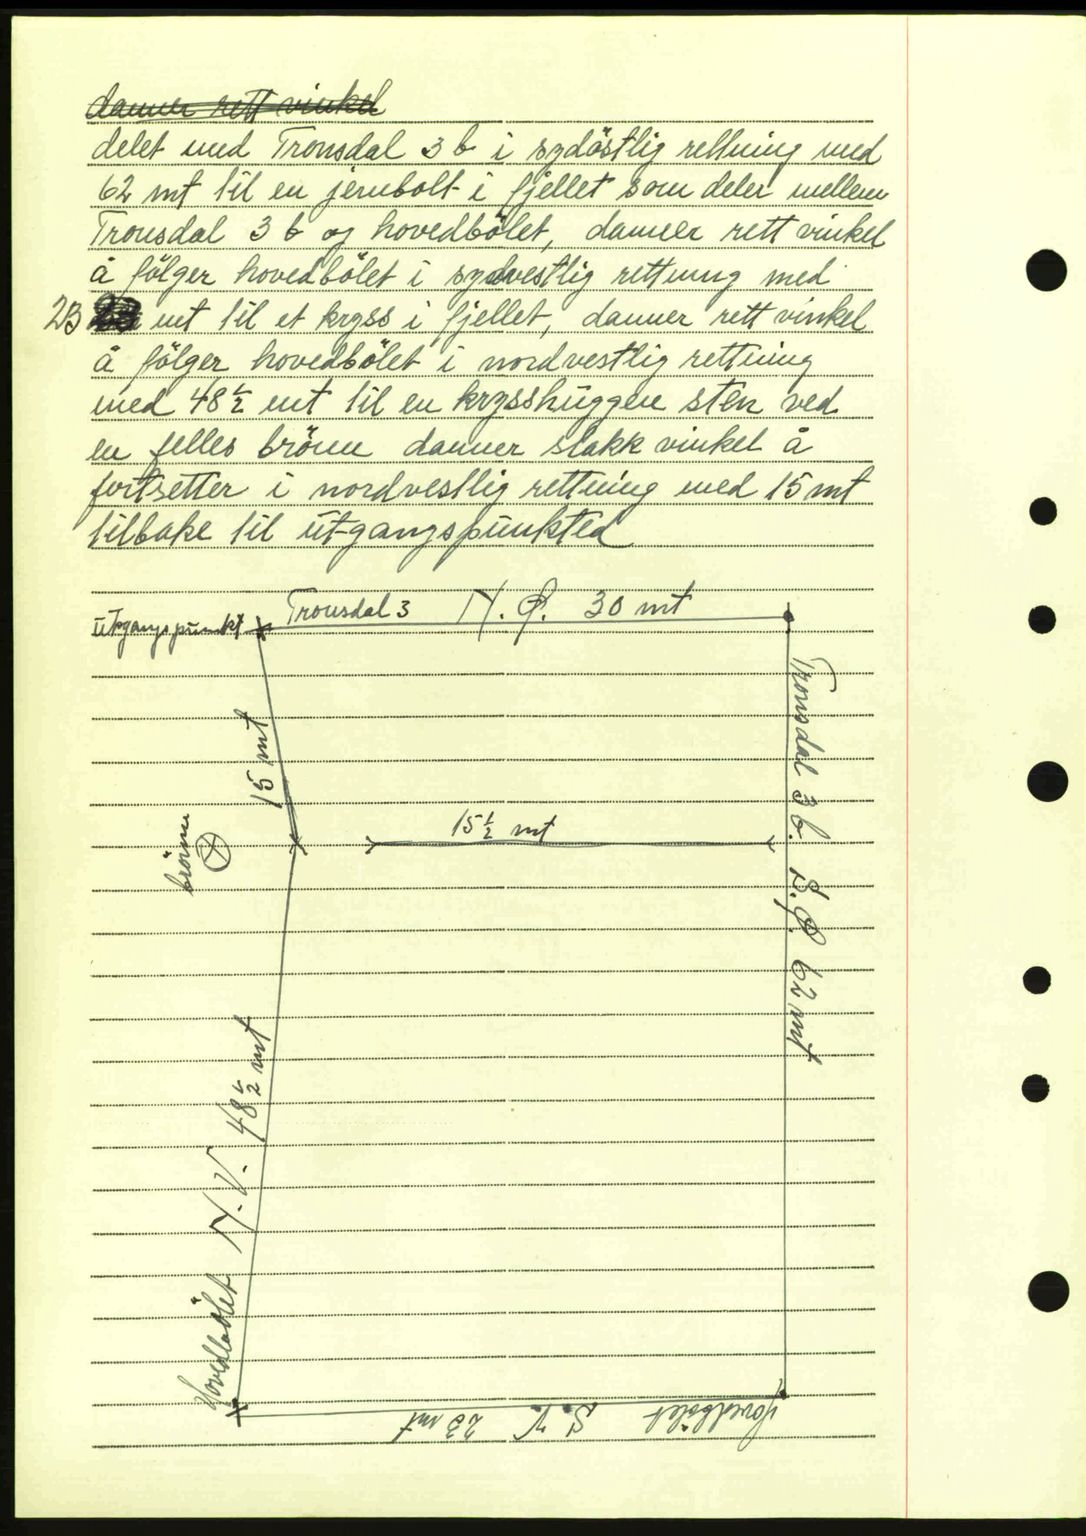 danner rett vinkel
delet med Tronsdal 3 b i sydöstlig rettning med
62 mt til en jernbolt i fjellet som deler mellem
Tronsdal 3 b og hovedbölet, danner rett vinkel
å fölger hovedbölet i sydvestlig rettning med
23 mt til et kryss i fjellet, danner rett vinkel
å fölger hovedbölet i nordvestlig rettning
med 48 ½ mt til en krysshuggen sten ved
en felles brönn danner slakk vinkel å
fortsetter i nordvestlig rettning med 15 mt
tilbake til utgangspunkted
Utgangspunkt
Tronsdal 3 N. Ø. 30 mt
15 mt
Tronsdal 3 b. S. Ø. 62 mt
15 ½ mt
brönn
Hovedbölet N. V. 48 ½ mt
Hovedbölet S. V. 23 mt